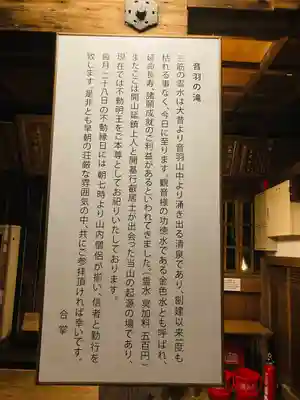 音羽の滝
三筋の霊水は大昔より音羽山中より湧き出る清泉であり、創建以来一度も
枯れる事なく、今日に至ります。観音様の功徳水である金色水とも呼ばれ、
延命長寿、諸願成就のご利益があるといわれてきました。(霊水 冥加料 五百円)
またここは開山延鎮上人と開基行叡居士が出会った当山の起源の場であり、
現在では不動明王をご本尊としてお祀りいたしております。
毎月二十八日の不動縁日には朝七時より山内僧侶が揃い、信者と勤行を
致します。是非とも早朝の荘厳な雰囲気の中、共にご参拝頂ければ幸いです。
合掌